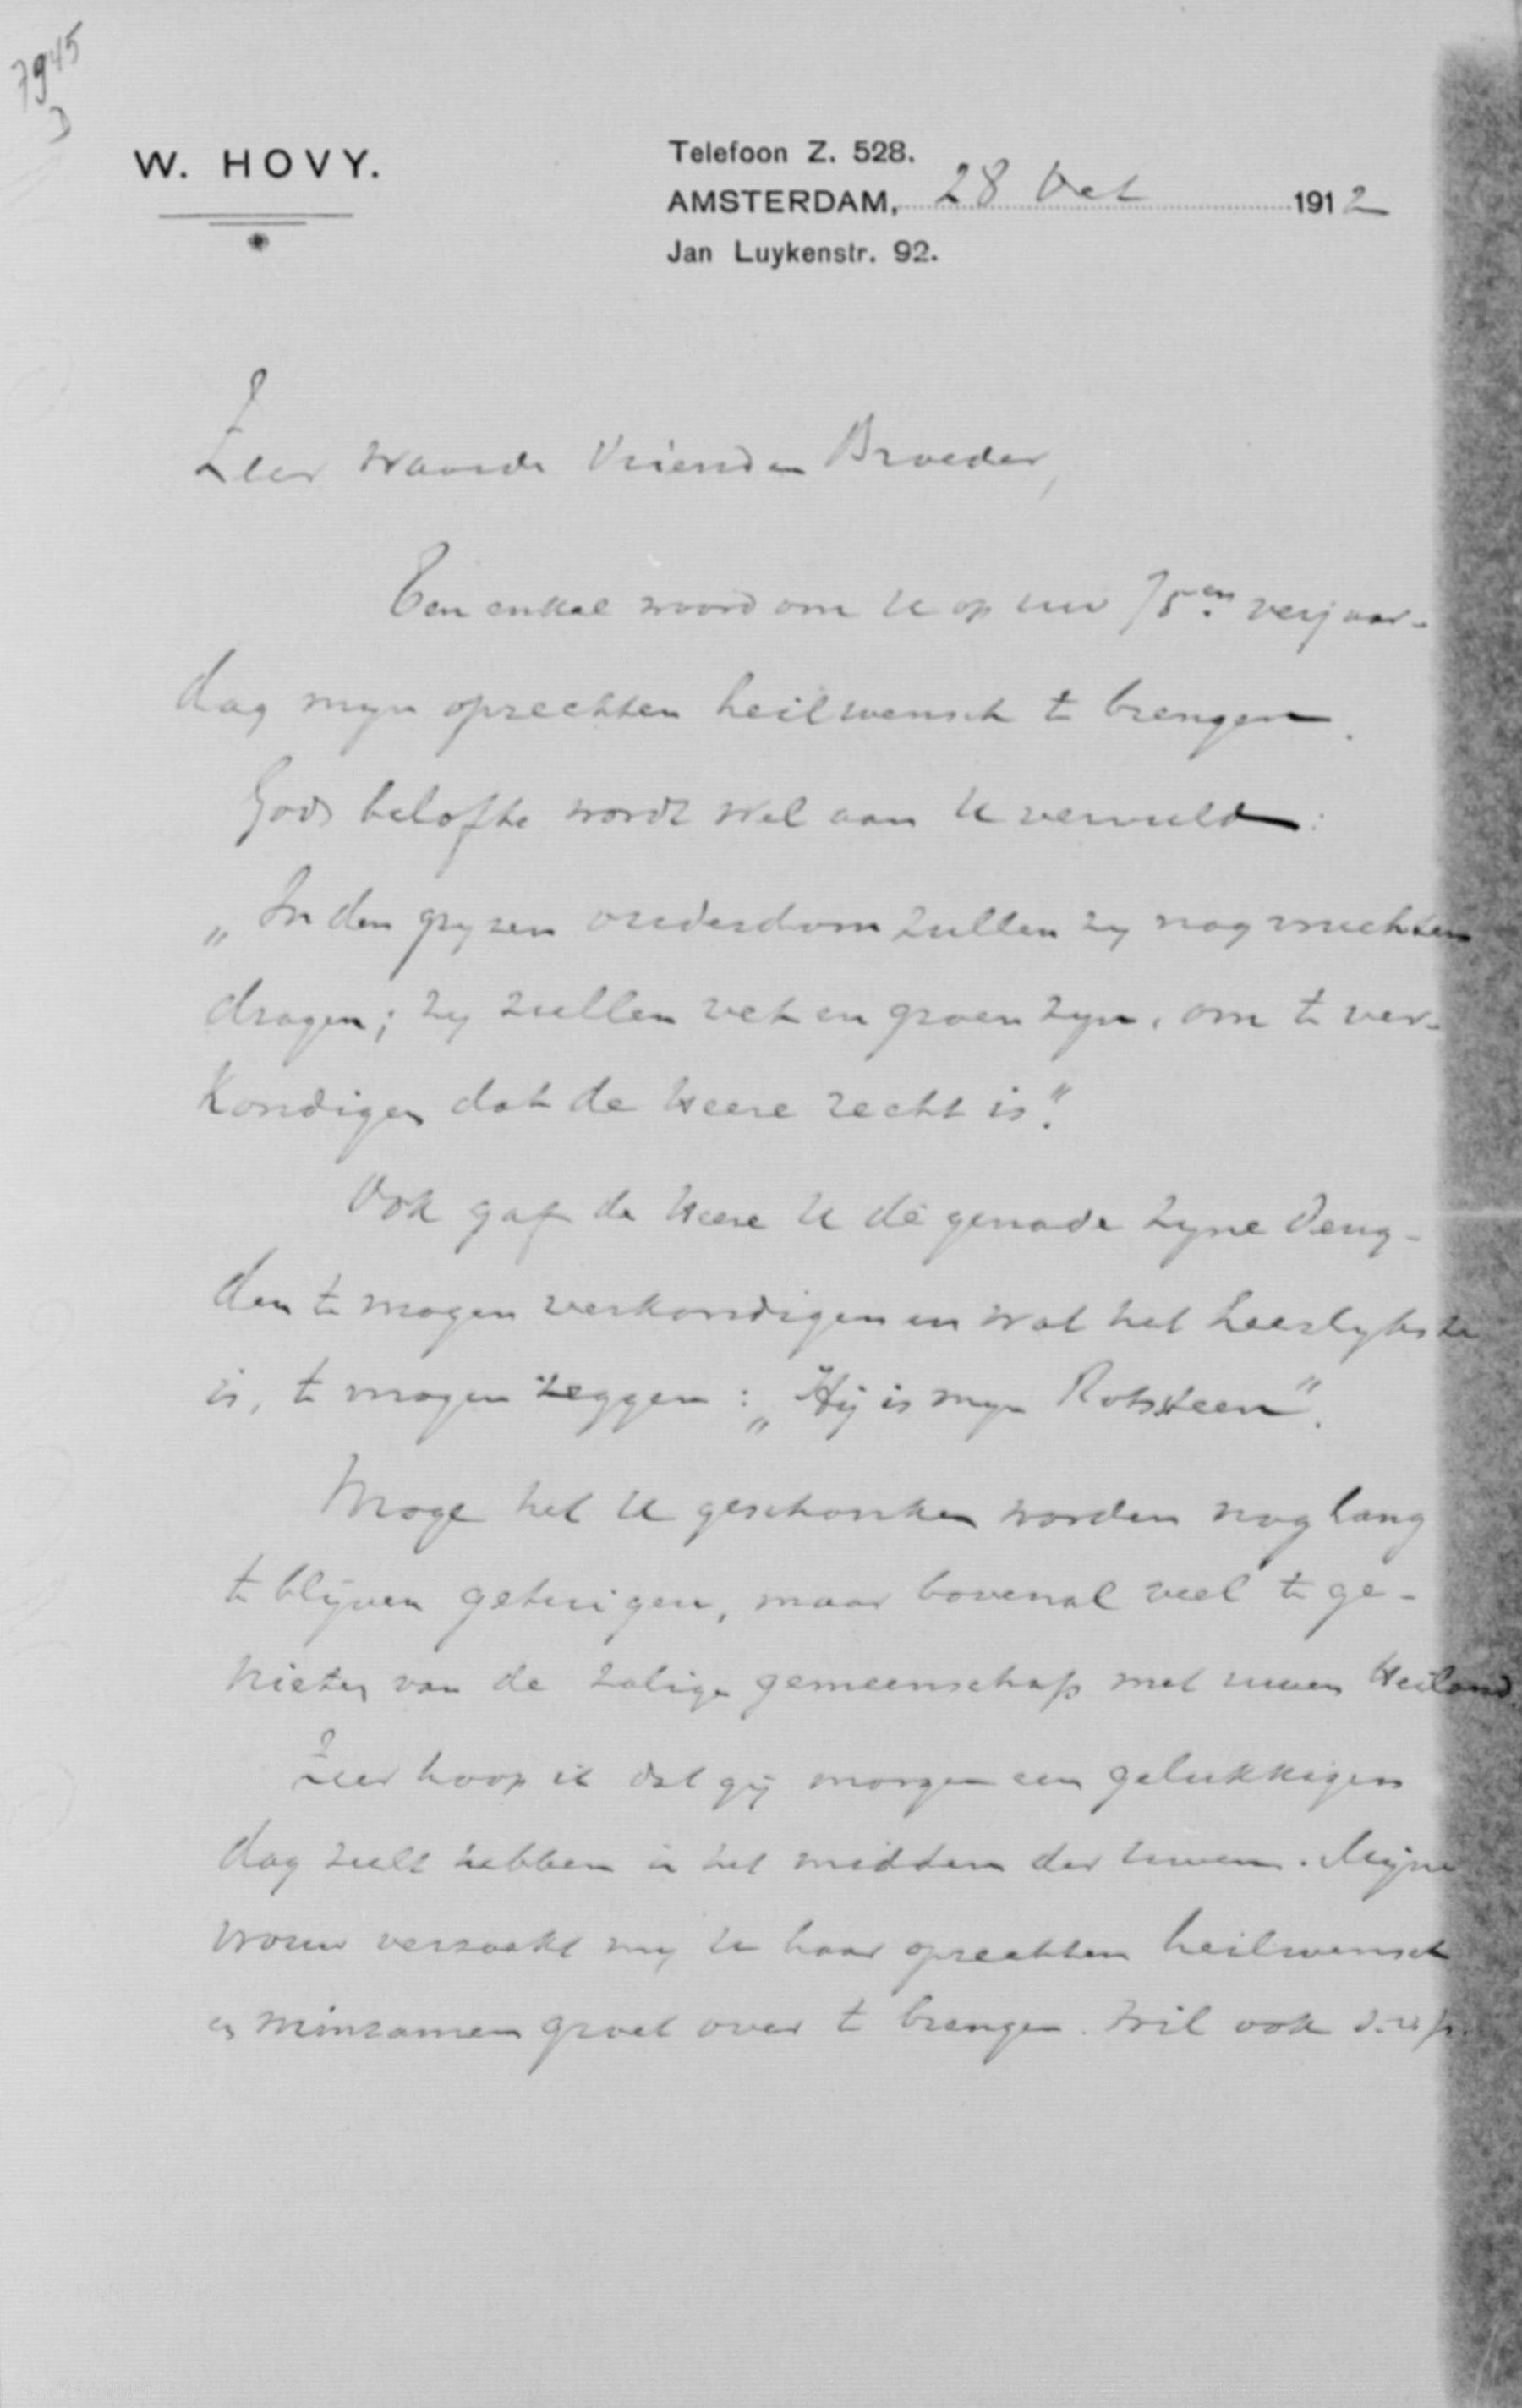 7945
D
W. HOVY.
Telefoon Z. 528.
AMSTERDAM, 28 Oct 1912
Jan Luykenstr. 92.
Zeer waarde Vriend en Broeder,
Een enkel woord om U op uw 75en verjaar-
dag mijn oprechten heilwensch te brengen.
Gods belofte wordt wel aan U vervuld:
„In den grijzen ouderdom zullen zij nog vruchten
dragen; zij zullen vet en groen zijn, om te ver-
kondigen dat de Heere recht is".
Ook gaf de Heere U de genade zijne deug-
den te mogen verkondigen en wat het heerlijkste
is, te mogen zeggen: „Hij is mijn Rotssteen".
Moge het U geschonken worden nog lang
te blijven getuigen, maar bovenal veel te ge-
nieten van de zalige gemeenschap met uwen Heiland.
Zeer hoop ik dat gij morgen een gelukkigen
dag zult hebben in het midden der uwen. Mijne
vrouw verzoekt mij U haar oprechten heilwensch
en minzamen groet over te brengen. Wil ook